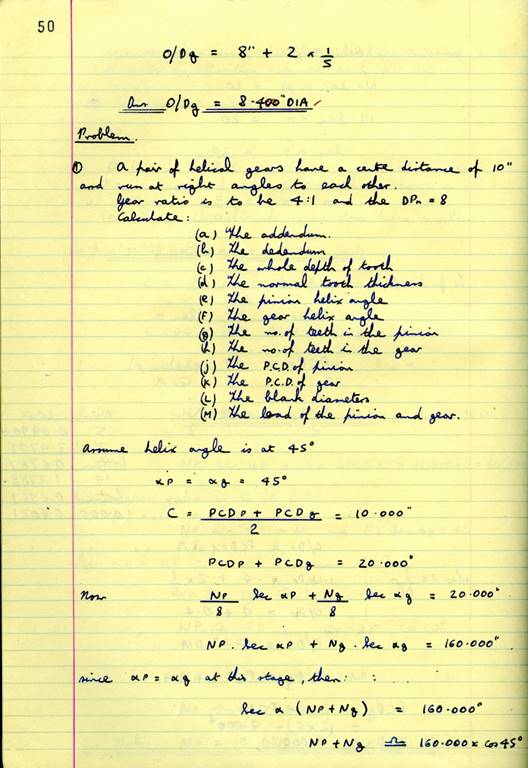 50
O/Dg = 8" + 2 x 1/5
Ans O/Dg = 8.400" DIA
Problem.
① A pair of helical gears have a centre distance of 10"
and run at right angles to each other.
Gear ratio is to be 4:1 and the DPn = 8
Calculate:
(a) The addendum.
(b) The dedendum
(c) The whole depth of tooth
(d) The normal tooth thickness
(e) The pinion helix angle
(F) The gear helix angle
(g) The no. of teeth in the pinion
(h) The no. of teeth in the gear
(j) The P.C.D. of pinion
(K) The P.C.D. of gear
(L) The blank diameters
(M) The lead of the pinion and gear.
Assume helix angle is at 45°
αP = αg = 45°
C = PCDP + PCDg / 2 = 10.000"
PCDP + PCDg = 20.000"
Now NP/8 Sec αP + Ng/8 Sec αg = 20.000"
NP. Sec αP + Ng. Sec αg = 160.000"
since αP = αg at this stage, then:
Sec α (NP + Ng) = 160.000"
NP + Ng ≏ 160.000 x cos 45°